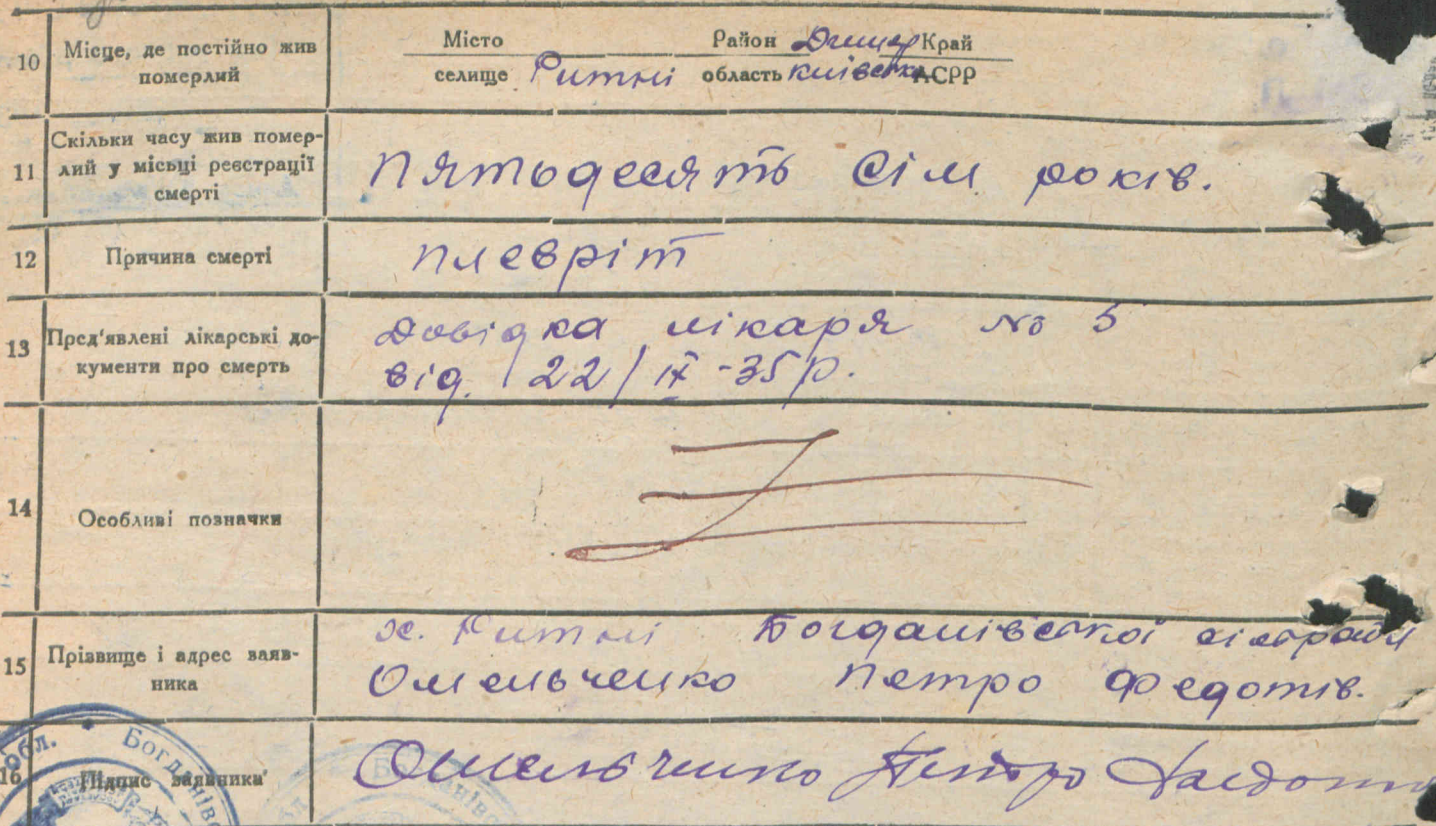 10 Місце, де постійно жив померлий
Місто Район Димер Край
селище Ритні область Київська АСРР
11 Скільки часу жив помер-
лий у місьці реєстрації
смерті
Пятьдесять сім років.
12 Причина смерті
плевріт
13 Пред'явлені лікарські до-
кументи про смерть
Довідка лікаря № 5
від. 22/IX-35р.
14 Особливі позначки
15 Прізвище і адрес заяв-
ника
х. Ритні Богданівської сільради
Омельченко Петро Федотів.
16 Підпис заявника
Омельченко Петро
обл. * Богданівс